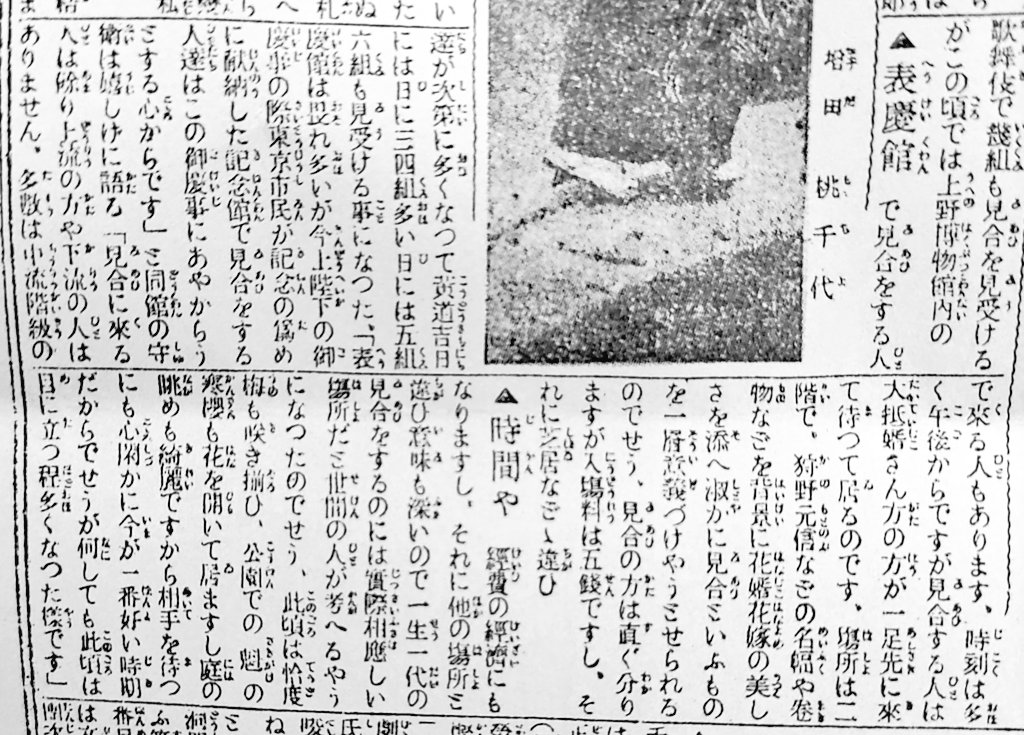 塔田桃千代
歌舞伎で幾組も見合を見受ける
がこの頃では上野博物館内の
▲表慶館 で見合をする人
達が次第に多くなつて黄道吉日
には日に三四組多い日には五組
六組も見受ける事になつた、「表
慶館は畏れ多いが今上陛下の御
慶事の際東京市民が記念の為め
に献納した記念館で見合をする
人達はこの御慶事にあやからう
とする心からです」と同館の守
衛は嬉しげに語る「見合に來る
人は餘り上流の方や下流の人は
ありません。多數は中流階級の
で來る人もあります、時刻は多
く午後からですが見合する人は
大抵婿さん方の方が一足先に來
て待つて居るのです。場所は二
階で、狩野元信などの名幅や巻
物などを背景に花婿花嫁の美し
さを添へ淑かに見合といふもの
を一層意義づけやうとせられる
のでせう、見合の方は直ぐ分り
ますが入場料は五錢ですし。そ
れに芝居などゝ違ひ
▲時間や 經費の經濟にも
なりますし、それに他の場所と
違ひ意味も深いので一生一代の
見合をするのには實際相應しい
場所だと世間の人が考へるやう
になつたのでせう、此頃は恰度
梅も咲き揃ひ、公園での魁の
寒櫻も花を開いて居ますし庭の
眺めも綺麗ですから相手を待つ
にも心閑かに今が一番好い時期
だからでせうが何しても此頃は
目に立つ程多くなつた樣です」